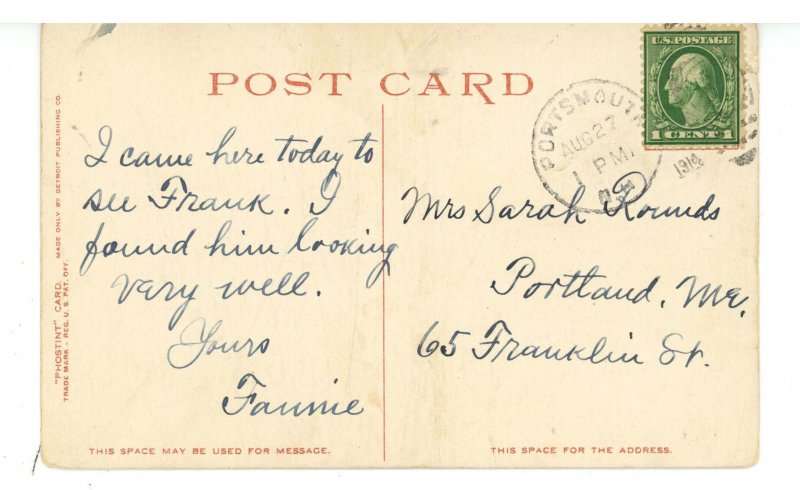 POST CARD
U.S. POSTAGE
1 CENT 1
PORTSMOUTH
AUG 27
1 PM
N.H.
1914
I came here today to
see Frank. I
found him looking
very well.
Yours
Fannie
Mrs Sarah Rounds
Portland, Me,
65 Franklin St.
"PHOSTINT" CARD. MADE ONLY BY DETROIT PUBLISHING CO.
TRADE MARK - REG. U. S. PAT. OFF.
THIS SPACE MAY BE USED FOR MESSAGE.
THIS SPACE FOR THE ADDRESS.